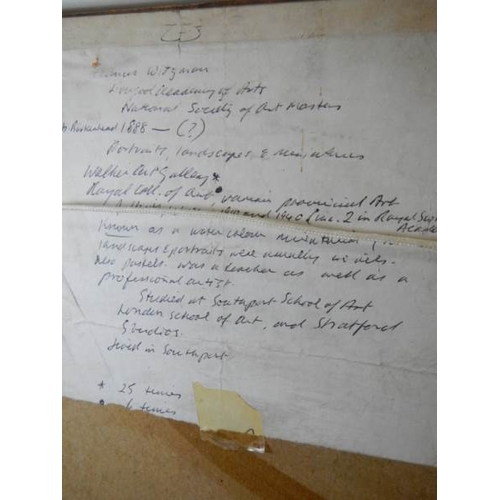 Royal Academy of Arts
National Society of Art Masters
Birkenhead 1888 — (?)
Portraits, landscapes, & miniatures
Walker Art Gallery *
Royal Coll. of Art • various provincial Art
and 1940 inc. 2 in Royal
Acade
Known as a water colour
landscapes & portraits were usually in oils.
pastels. Was a teacher as well as a
professional artist.
Studied at Southport School of Art
London School of Art, and Stratford
Studios.
Lived in Southport
* 25 times
• 6 times